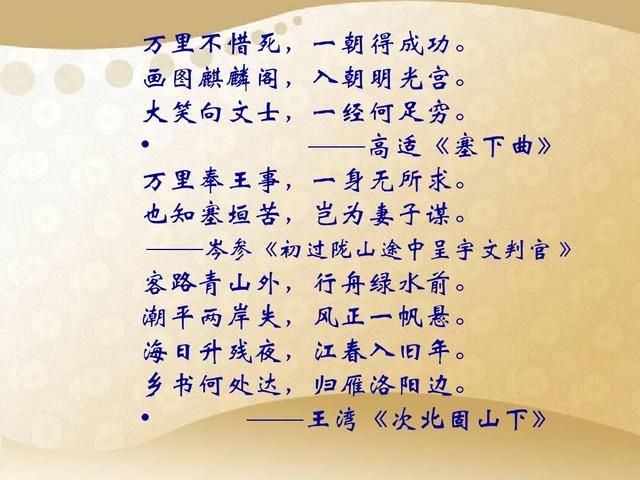 万里不惜死，一朝得成功。
画图麒麟阁，入朝明光宫。
大笑向文士，一经何足穷。
• ——高适《塞下曲》
万里奉王事，一身无所求。
也知塞垣苦，岂为妻子谋。
——岑参《初过陇山途中呈宇文判官 》
客路青山外，行舟绿水前。
潮平两岸失，风正一帆悬。
海日升残夜，江春入旧年。
乡书何处达，归雁洛阳边。
• ——王湾《次北固山下》